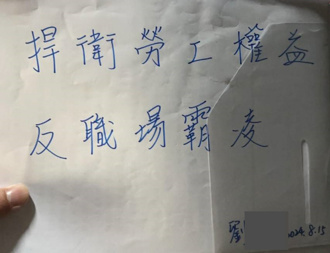 捍衛勞工權益
反職場霸凌
劉
2024.8.15